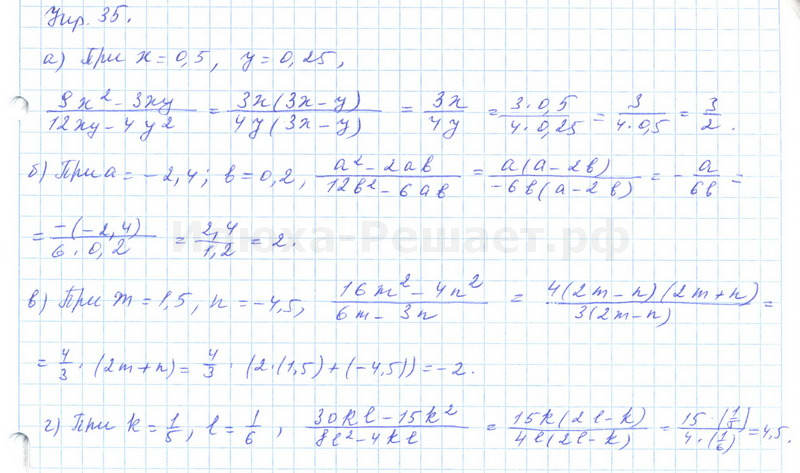 Упр. 35.
а) При x = 0,5, y = 0,25,
(9x² - 3xy)/(12xy - 4y²) = (3x(3x - y))/(4y(3x - y)) = 3x/4y = (3·0,5)/(4·0,25) = 3/(4·0,5) = 3/2.
б) При a = -2,4; b = 0,2, (a² - 2ab)/(12b² - 6ab) = (a(a - 2b))/(-6b(a - 2b)) = -a/6b =
= (-(-2,4))/(6·0,2) = 2,4/1,2 = 2.
Илюха-Решает.рф
в) При m = 1,5, n = -4,5, (16m² - 4n²)/(6m - 3n) = (4(2m - n)(2m + n))/(3(2m - n)) =
= 4/3 · (2m + n) = 4/3 · (2·(1,5) + (-4,5)) = -2.
г) При k = 1/5, l = 1/6, (30kl - 15k²)/(8l² - 4kl) = (15k(2l - k))/(4l(2l - k)) = (15·(1/5))/(4·(1/6)) = 4,5.